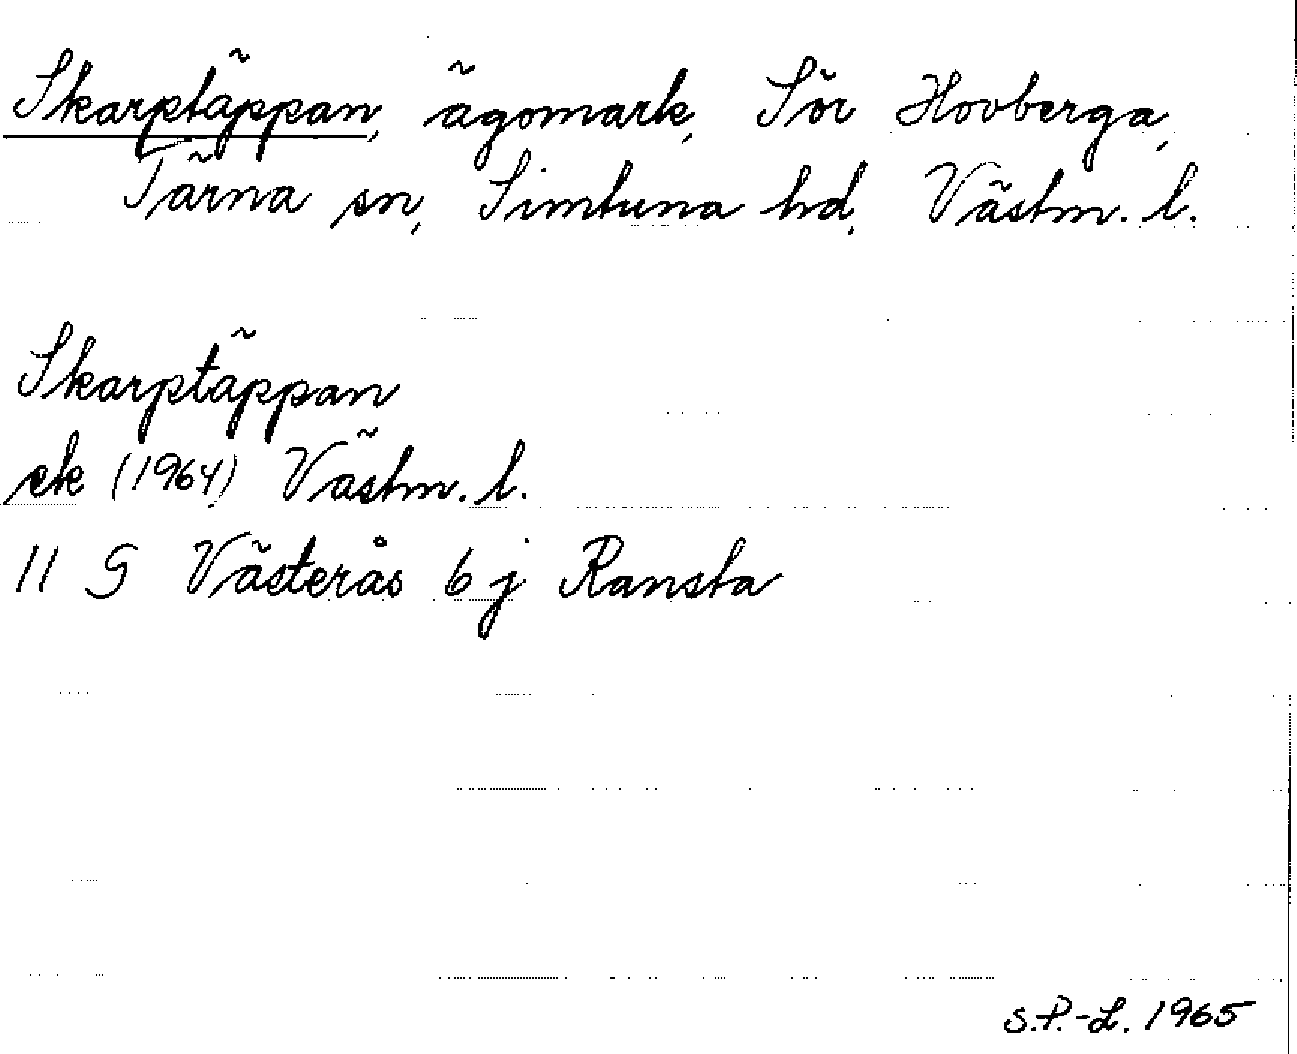 Skarptäppan, ägomark, Sör Hovberga,
Tärna sn, Simtuna hd, Västm. l.
Skarptäppan
ek (1964) Västm. l.
11 G Västerås 6 j Ransta
S.P.-L. 1965